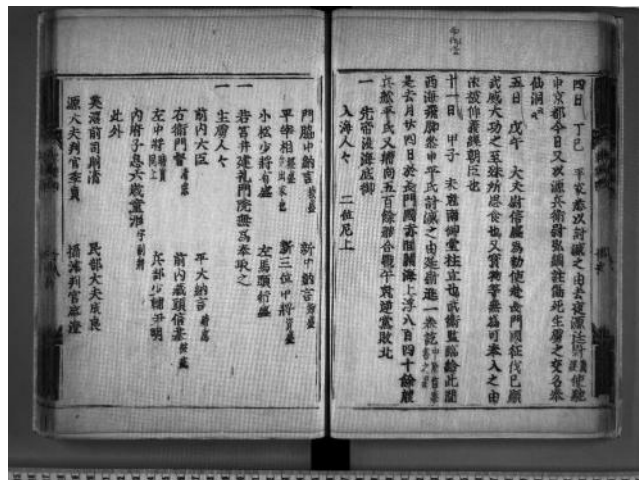 四日 丁巳 平家悉以討滅之由去夜源廷尉義經使馳
申京都今日又以源兵衛尉弘綱註傷死生虜之交名奉
仙洞云云
五日 戊午 大夫尉信盛為勅使赴長門國征伐已顯
武威大功之至殊所感思食也又寶物等無為可奉入之由
依被仰義經朝臣也
十一日 甲子 未剋南御堂柱立也武衛監臨給此間
西海飛脚參申平氏討滅之由廷尉進一卷記中原信泰書之云云
是去月廿四日於長門國赤間關海上浮八百四十餘艘
兵船平氏又艚向五百餘艘合戰午剋逆黨敗北
一 先帝沒海底御
入海人々 二位尼上
門脇中納言教盛 新中納言知盛
平宰相經盛 新三位中將資盛
小松少將有盛 左馬頭行盛
一 若宮并建禮門院無為奉取之
一 生虜人々
前内大臣 平大納言時忠
右衛門督清宗 前内藏頭信基被疵
左中將時實同上 兵部少輔尹明
内府子息六歳童形字副將
此外
美濃前司則清 民部大夫成良
源大夫判官季貞 攝津判官盛澄